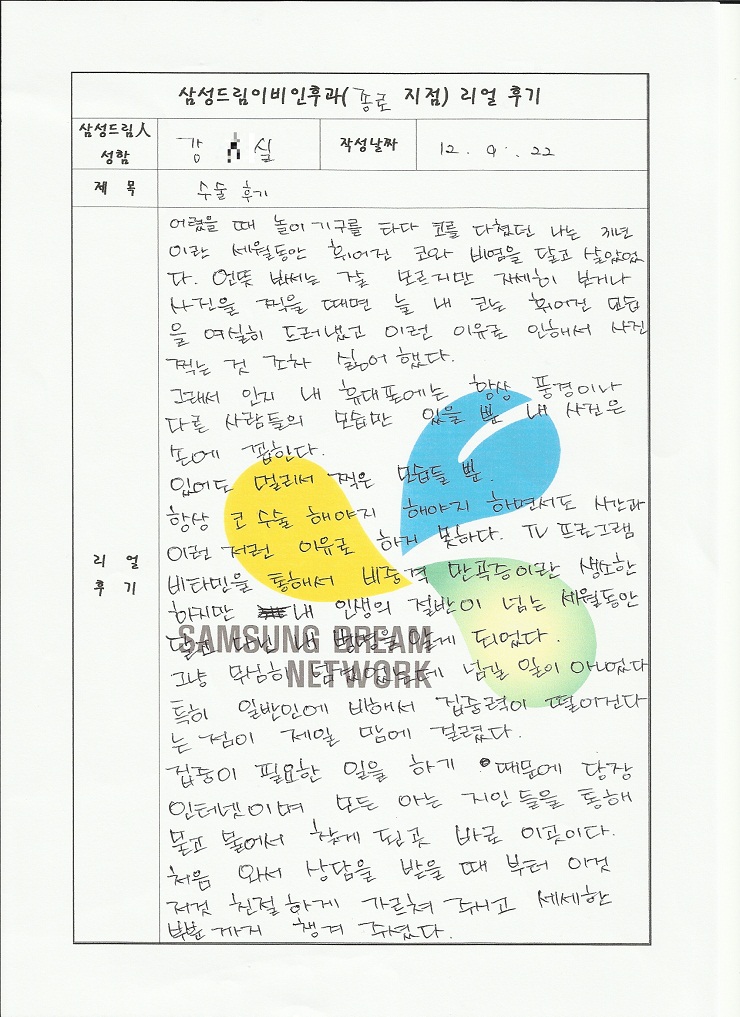 삼성드림이비인후과(종로 지점) 리얼 후기
삼성드림人 성함
강 실
작성날짜
12. 9. 22
제 목
수술 후기
리 얼 후 기
어렸을 때 놀이기구를 타다 코를 다쳤던 나는
이란 세월동안 휘어진 코와 비염을 달고 살았었
다. 언뜻 봐서는 잘 모르지만 자세히 보거나
사진을 찍을 때면 늘 내 코는 휘어진 모습
을 여실히 드러냈고 이런 이유로 인해서 사진
찍는 것 조차 싫어 했다.
그래서 인지 내 휴대폰에는 항상 풍경이나
다른 사람들의 모습만 있을 뿐 내 사진은
손에 꼽힌다.
있어도 멀리서 찍은 모습들 뿐.
항상 코 수술 해야지 해야지 하면서도 시간과
이런 저런 이유로 하게 못하다. TV 프로그램
비타민을 통해서 비중격 만곡증이란 생소한
하지만 내 인생의 절반이 넘는 세월동안
달고 다닌 내 병명을 알게 되었다.
그냥 무심히 넘길 일이 아니었다
특히 일반인에 비해서 집중력이 떨어진다
는 점이 제일 맘에 걸렸다.
집중이 필요한 일을 하기 때문에 당장
인터넷이며 모든 아는 지인들을 통해
묻고 물어서 찾게 된 곳 바로 이곳이다.
처음 와서 상담을 받을 때 부터 이것
저것 친절하게 가르쳐 주시고 세세한
부분까지 챙겨 주셨다.
SAMSUNG DREAM
NETWORK